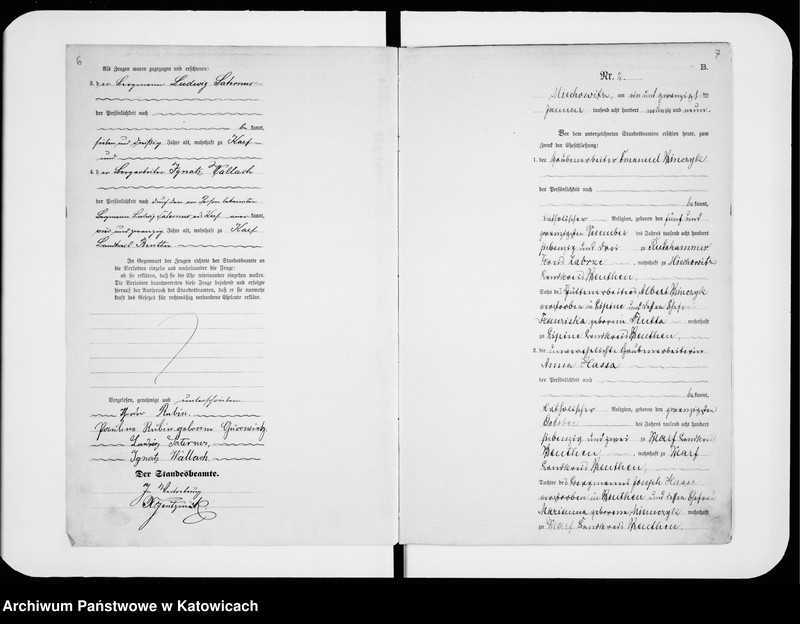 6
Als Zeugen waren zugezogen und erschienen:
3. der Bergmann Ludwig Saternus
der Persönlichkeit nach
be kannt,
sieben und dreißig Jahre alt, wohnhaft zu Karf
und
4. der Bergarbeiter Ignatz Wallach
der Persönlichkeit nach durch den von Person bekannten
Bergmann Ludwig Saternus aus Karf aner kannt,
und zwanzig Jahre alt, wohnhaft zu Karf
Landkreis Beuthen
In Gegenwart der Zeugen richtete der Standesbeamte an
die Verlobten einzeln und nacheinander die Frage:
ob sie erklären, daß sie die Ehe miteinander eingehen wollen.
Die Verlobten beantworteten diese Frage bejahend und erfolgte
hierauf der Ausspruch des Standesbeamten, daß er sie nunmehr
kraft des Gesetzes für rechtmäßig verbundene Eheleute erkläre.
Vorgelesen, genehmigt und unterschrieben
Rubin.
Pauline Rubin geborene Gurwietz.
Ludwig Saternus,
Ignatz Wallach
Der Standesbeamte.
In Vertretung
7
B.
Nr. 2.
Miechowitz, am ein und zwanzigst ten
Januar tausend acht hundert neunzig und neun.
Vor dem unterzeichneten Standesbeamten erschien heute, zum
Zweck der Eheschließung:
1. der Grubenarbeiter Emanuel
der Persönlichkeit nach
be kannt,
katholischer Religion, geboren den fünf und
zwanzigsten Dezember des Jahres tausend acht hundert
siebenzig und drei zu Rudahammer
Kreis Zabrze, wohnhaft zu Miechowitz
Landkreis Beuthen,
Sohn des Hüttenarbeiters Albert
verstorben in Lipine und dessen Ehefrau
Franziska geborene wohnhaft
zu Lipine Landkreis Beuthen,
2. die unverehelichte Grubenarbeiterin
Anna Hassa
der Persönlichkeit nach
be kannt,
katholischer Religion, geboren den zwanzigsten
October des Jahres tausend acht hundert
siebenzig und zwei zu Karf Landkreis
Beuthen, wohnhaft zu Karf
Landkreis Beuthen,
Tochter des Bergmanns Joseph Hassa
verstorben in Beuthen und dessen Ehefrau
Marianna geborene wohnhaft
zu Karf Landkreis Beuthen.
Archiwum Państwowe w Katowicach